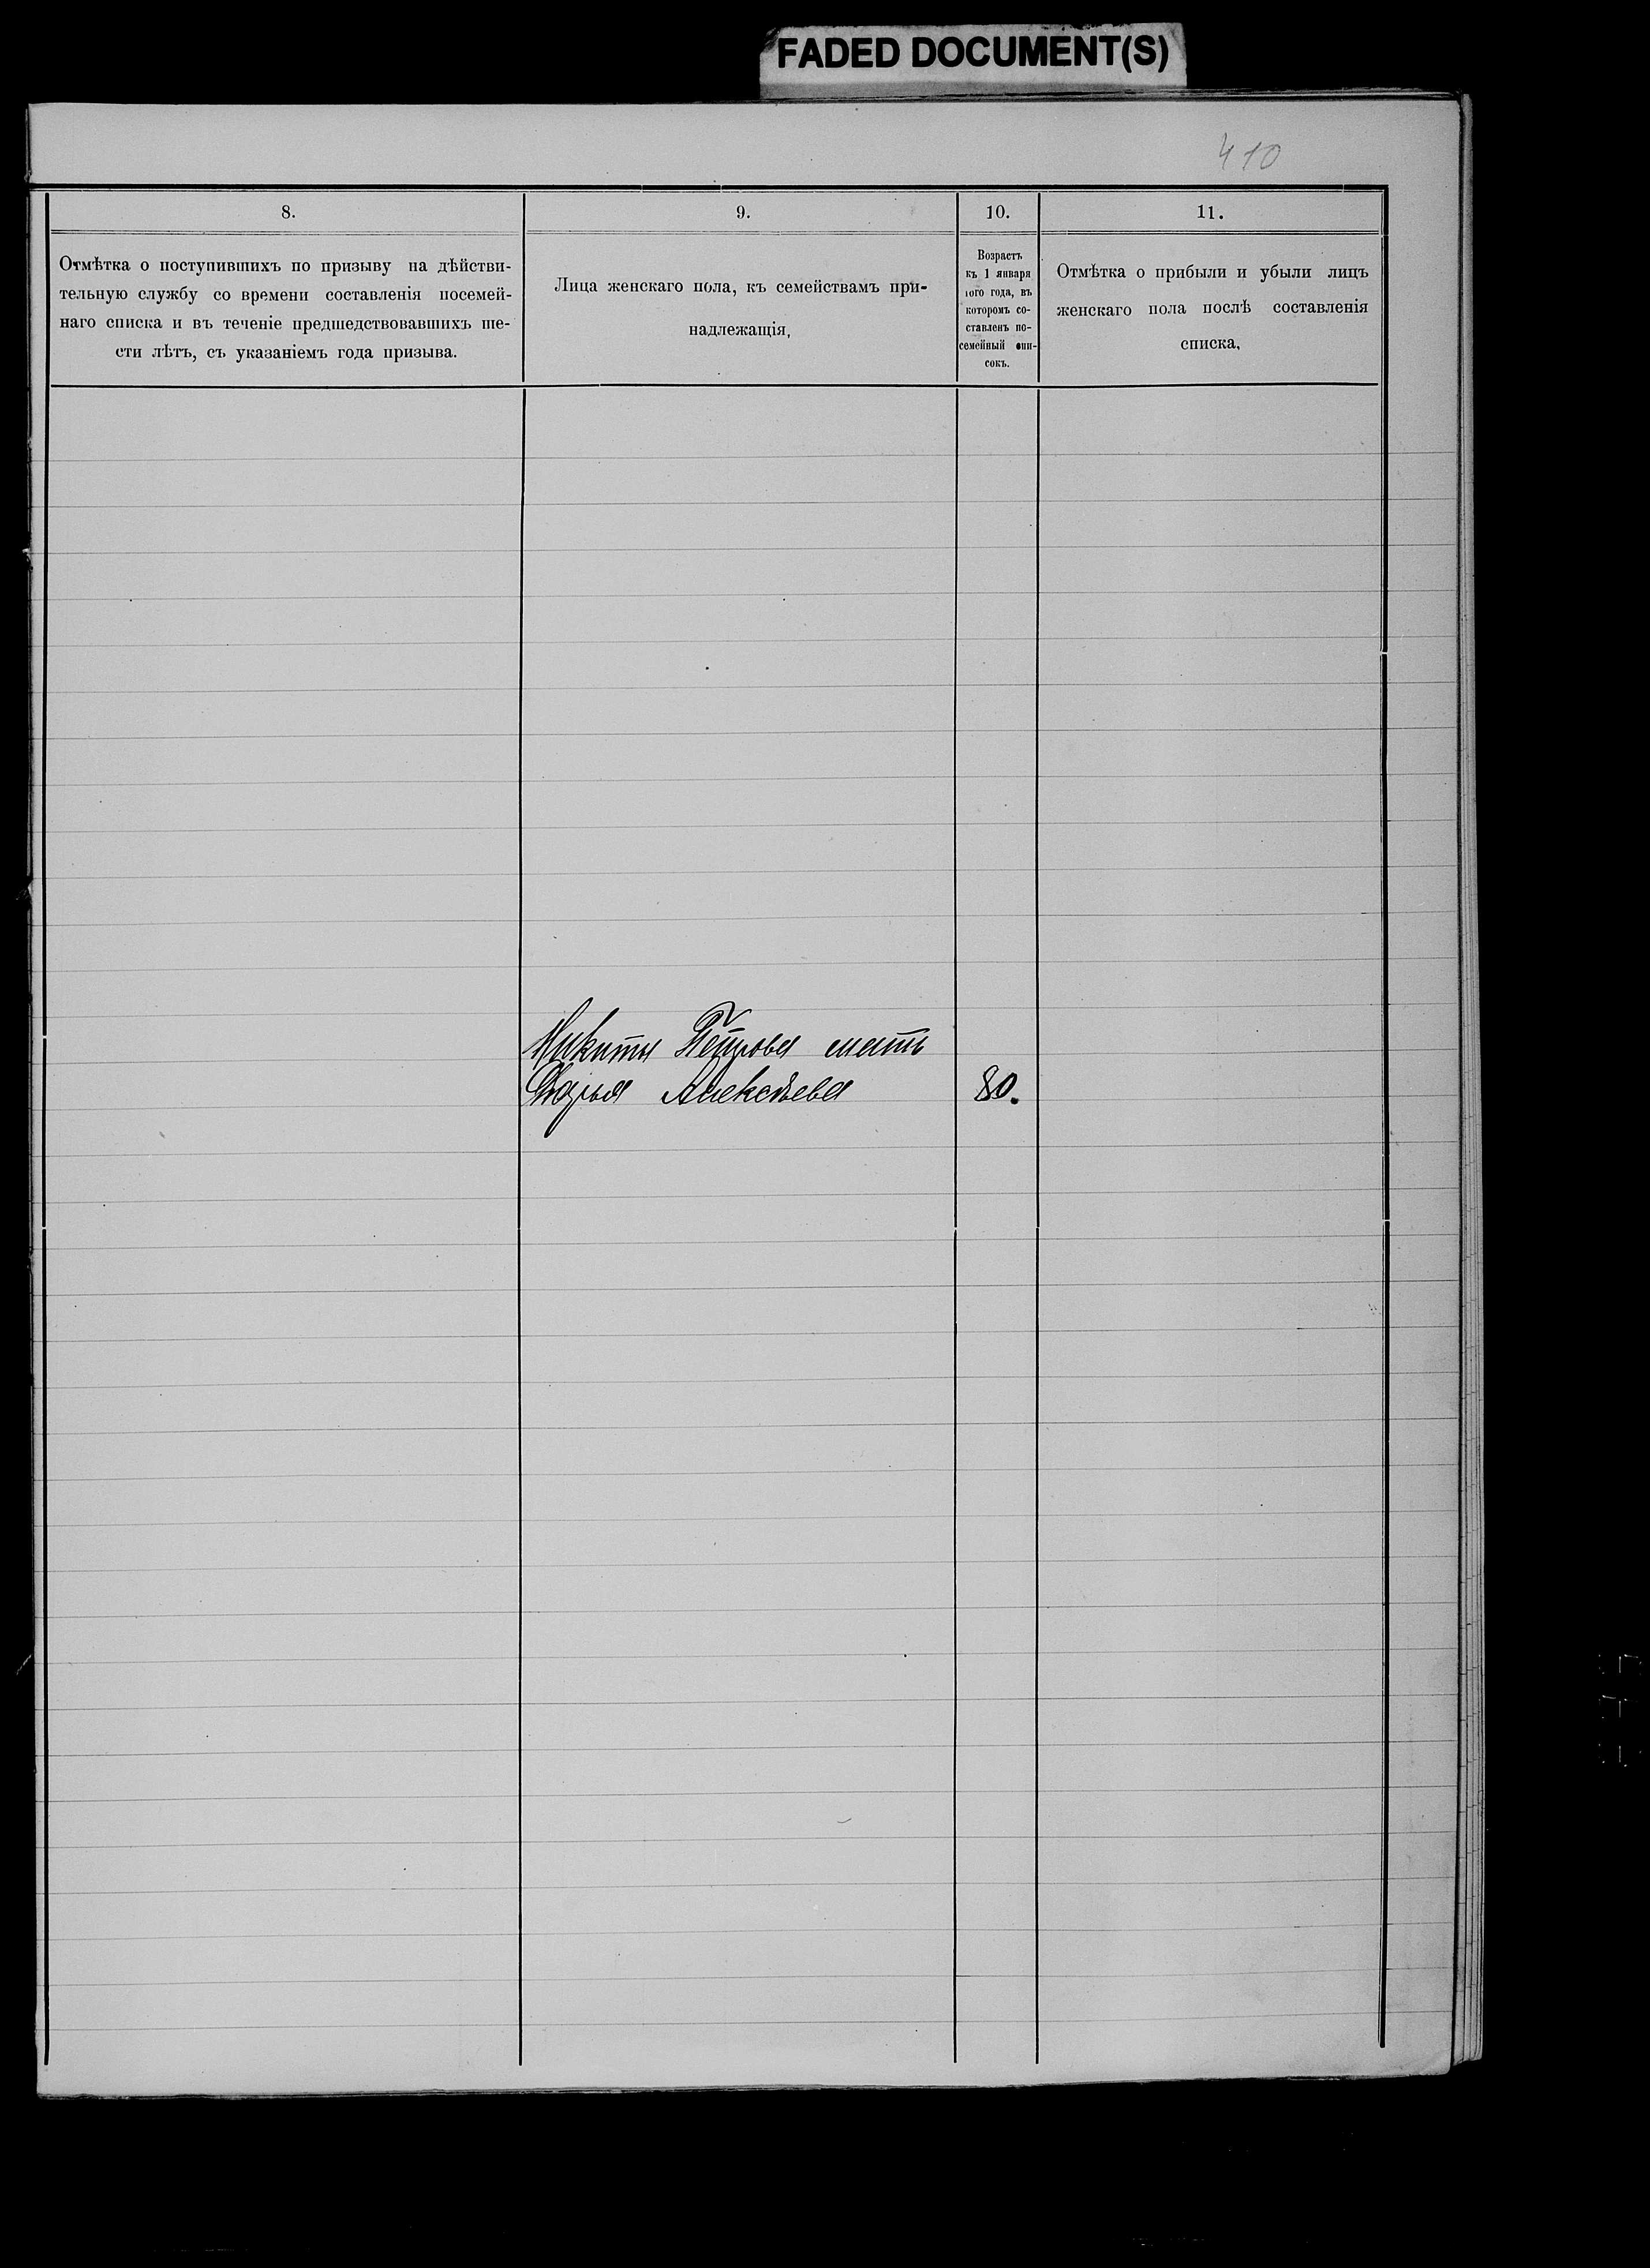 FADED DOCUMENT(S)
410
8.
Отмѣтка о поступившихъ по призыву на дѣйстви-
тельную службу со времени составленія посемей-
наго списка и въ теченіе предшедствовавшихъ ше-
сти лѣтъ, съ указаніемъ года призыва.
9.
Лица женскаго пола, къ семействамъ при-
надлежащія,
10.
Возрастъ
къ 1 января
того года, въ
которомъ со-
ставленъ по-
семейный спи-
сокъ.
11.
Отмѣтка о прибыли и убыли лицъ
женскаго пола послѣ составленія
списка,
Никиты Петрова мать
Дарья Алексѣева
80.